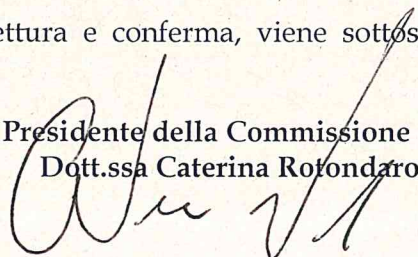 ettura e conferma, viene sottos
Presidente della Commissione
Dott.ssa Caterina Rotondaro